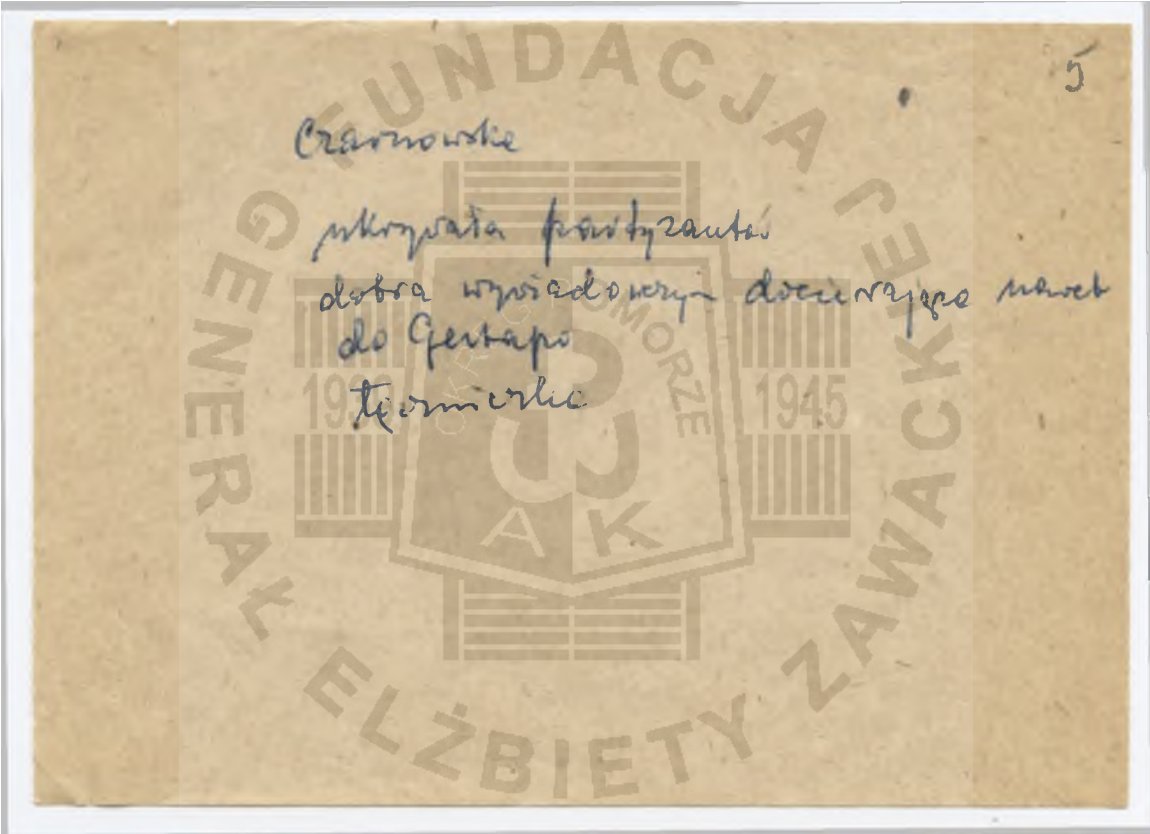 5
Czarnowska
ukrywała partyzantów
dobra wywiadowczyni docierająca nawet
do Gestapo
FUNDACJA GENERAŁ ELŻBIETY ZAWACKIEJ
OKRĘG POMORZE
1939 1945
AK